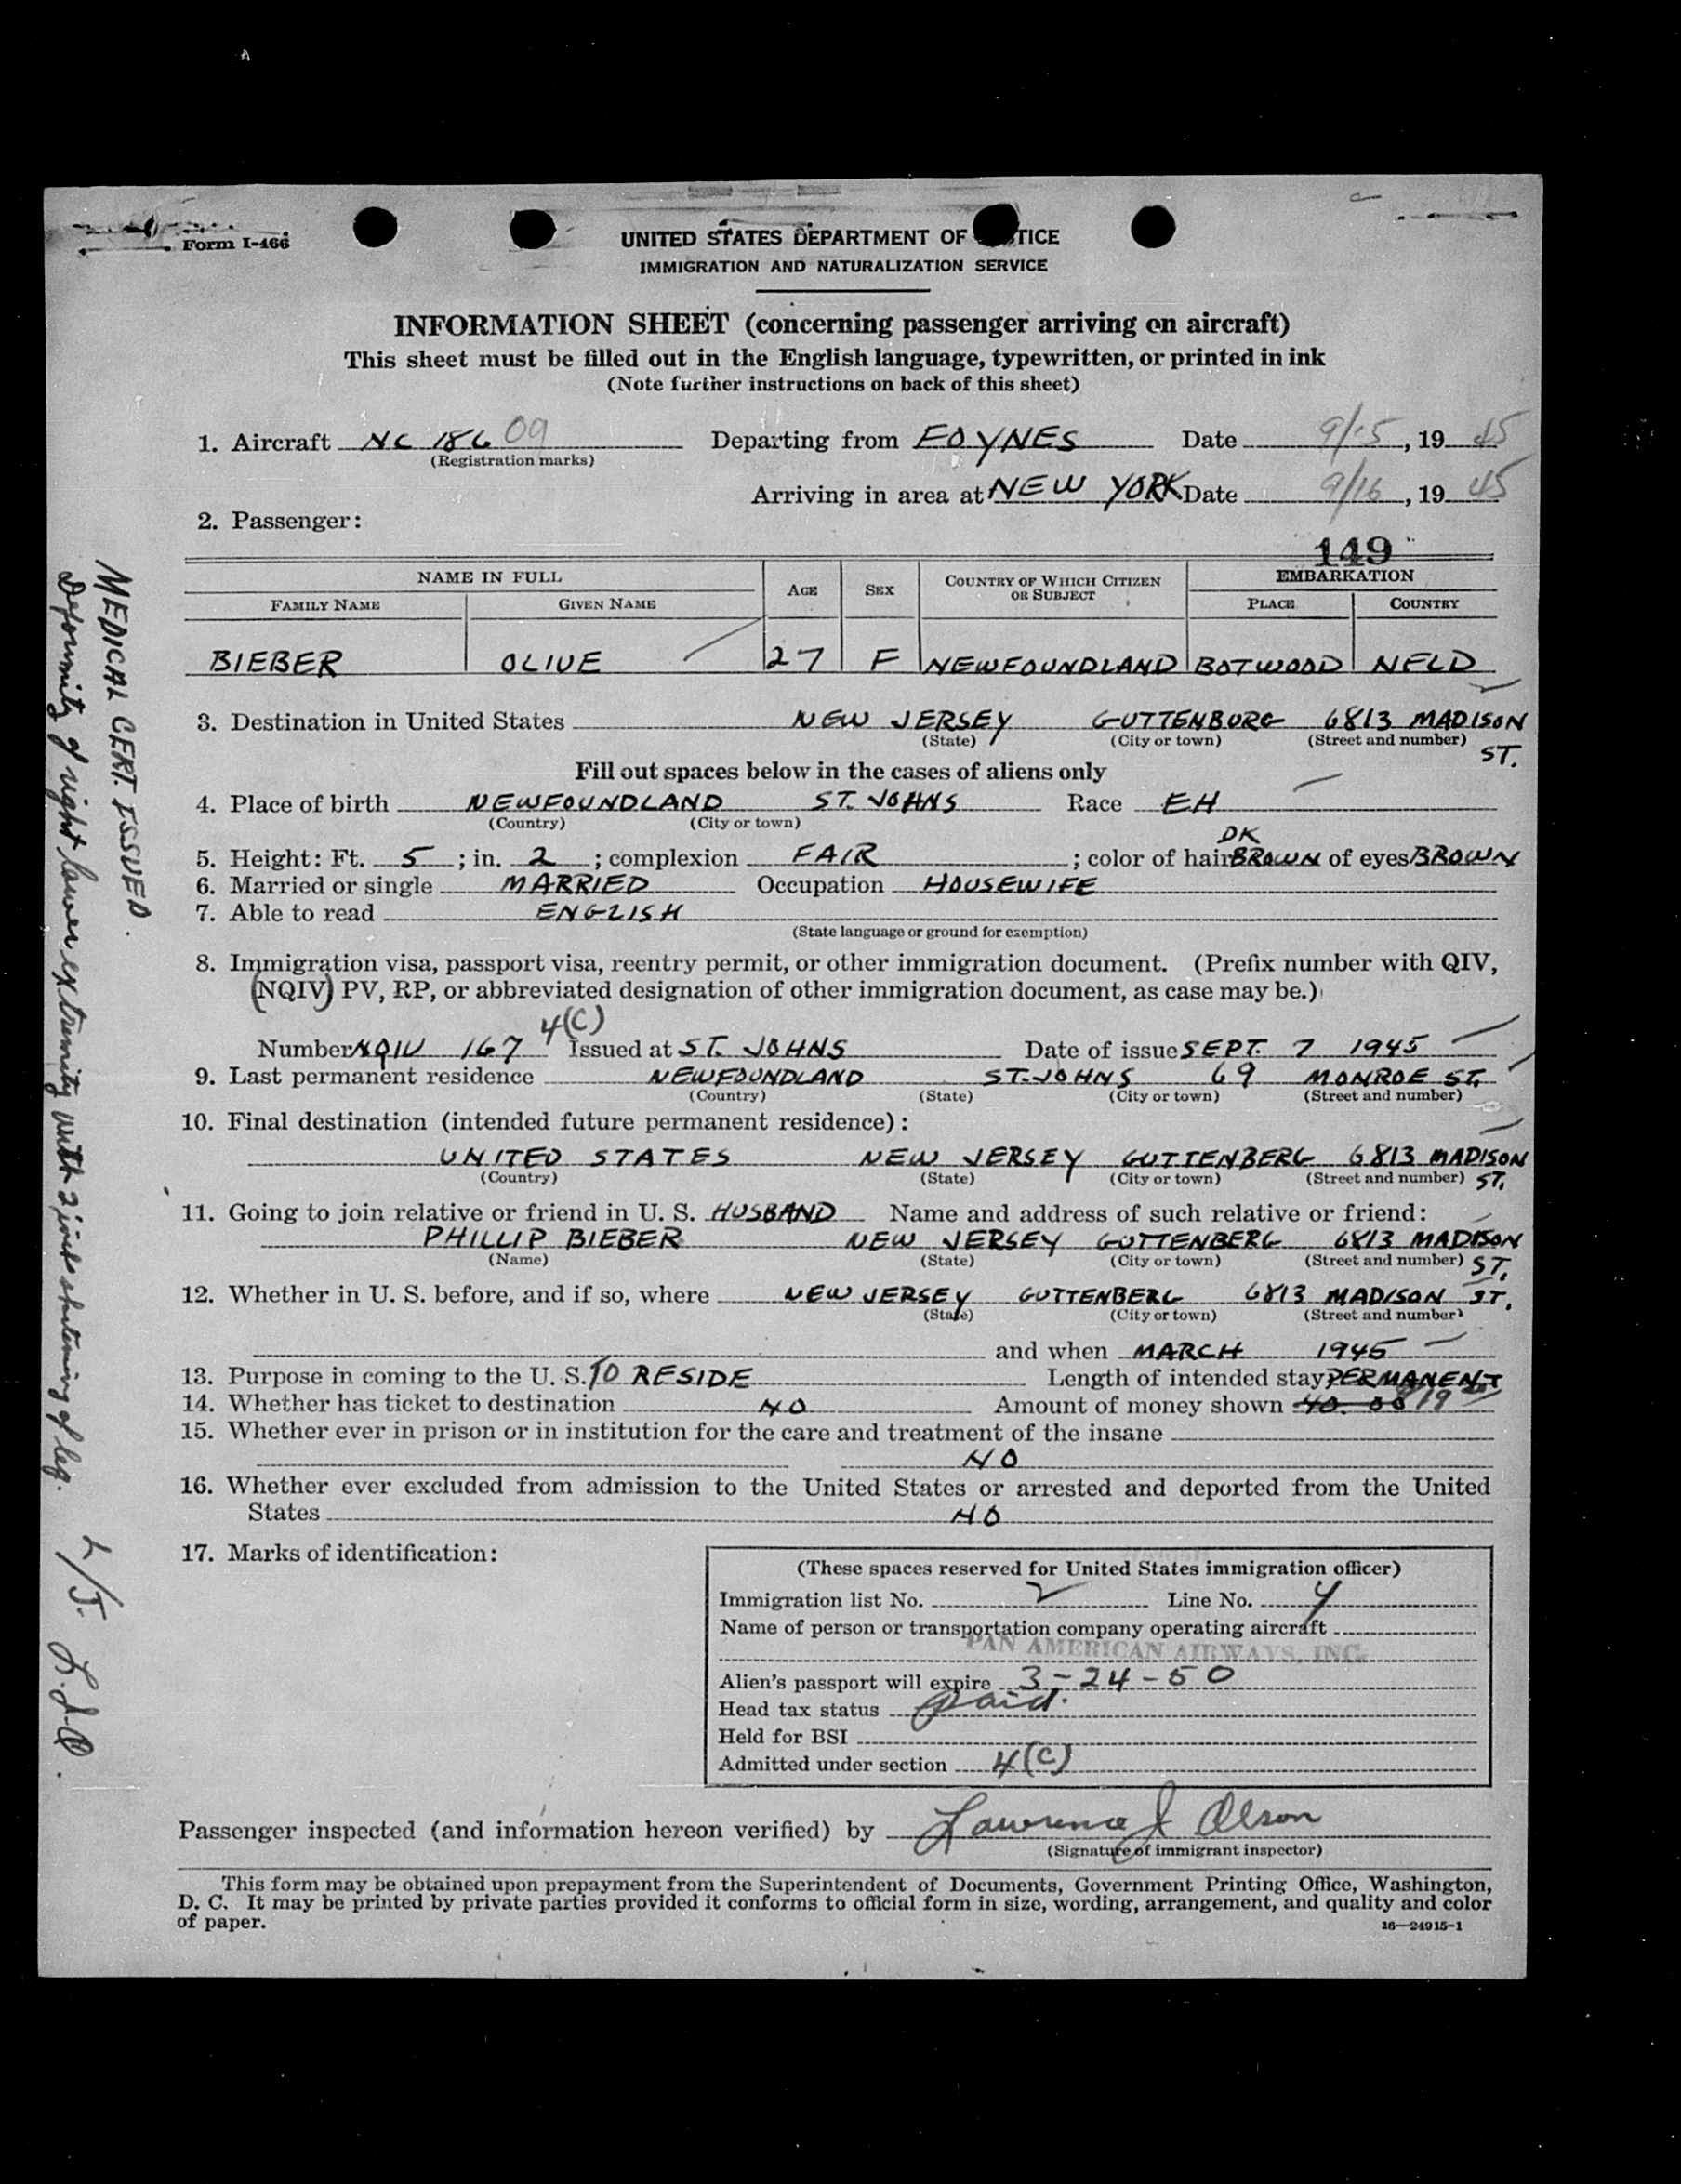 Form I-466
UNITED STATES DEPARTMENT OF TICE
IMMIGRATION AND NATURALIZATION SERVICE
INFORMATION SHEET (concerning passenger arriving on aircraft)
This sheet must be filled out in the English language, typewritten, or printed in ink
(Note further instructions on back of this sheet)
1. Aircraft NC 18609 Departing from FOYNES Date 9/15, 1945
(Registration marks)
Arriving in area at NEW YORK Date 9/16, 1945
2. Passenger:
149
NAME IN FULL AGE SEX COUNTRY OF WHICH CITIZEN OR SUBJECT EMBARKATION
FAMILY NAME GIVEN NAME PLACE COUNTRY
BIEBER OLIVE 27 F NEWFOUNDLAND BOTWOOD NFLD
3. Destination in United States NEW JERSEY GUTTENBURG 6813 MADISON ST.
(State) (City or town) (Street and number)
Fill out spaces below in the cases of aliens only
4. Place of birth NEWFOUNDLAND ST. JOHNS Race EH
(Country) (City or town)
5. Height: Ft. 5; in. 2; complexion FAIR; color of hair DK BROWN of eyes BROWN
6. Married or single MARRIED Occupation HOUSEWIFE
7. Able to read ENGLISH
(State language or ground for exemption)
8. Immigration visa, passport visa, reentry permit, or other immigration document. (Prefix number with QIV,
(NQIV) PV, RP, or abbreviated designation of other immigration document, as case may be.)
Number NQIV 167 4(C) Issued at ST. JOHNS Date of issue SEPT. 7 1945
9. Last permanent residence NEWFOUNDLAND ST. JOHNS 69 MONROE ST.
(Country) (State) (City or town) (Street and number)
10. Final destination (intended future permanent residence):
UNITED STATES NEW JERSEY GUTTENBERG 6813 MADISON ST.
(Country) (State) (City or town) (Street and number)
11. Going to join relative or friend in U. S. HUSBAND Name and address of such relative or friend:
PHILLIP BIEBER NEW JERSEY GUTTENBERG 6813 MADISON ST.
(Name) (State) (City or town) (Street and number)
12. Whether in U. S. before, and if so, where NEW JERSEY GUTTENBERG 6813 MADISON ST.
(State) (City or town) (Street and number)
and when MARCH 1945
13. Purpose in coming to the U. S. TO RESIDE Length of intended stay PERMANENT
14. Whether has ticket to destination NO Amount of money shown 40.00
15. Whether ever in prison or in institution for the care and treatment of the insane
NO
16. Whether ever excluded from admission to the United States or arrested and deported from the United
States NO
17. Marks of identification:
(These spaces reserved for United States immigration officer)
Immigration list No. 2 Line No. 4
Name of person or transportation company operating aircraft
PAN AMERICAN AIRWAYS, INC.
Alien's passport will expire 3-24-50
Head tax status paid.
Held for BSI
Admitted under section 4(C)
Passenger inspected (and information hereon verified) by Lawrence J Olson
(Signature of immigrant inspector)
This form may be obtained upon prepayment from the Superintendent of Documents, Government Printing Office, Washington,
D. C. It may be printed by private parties provided it conforms to official form in size, wording, arrangement, and quality and color
of paper.
16—24915-1
MEDICAL CERT. ISSUED.
Deformity of right lower extremity with 2 inch shortening of leg.